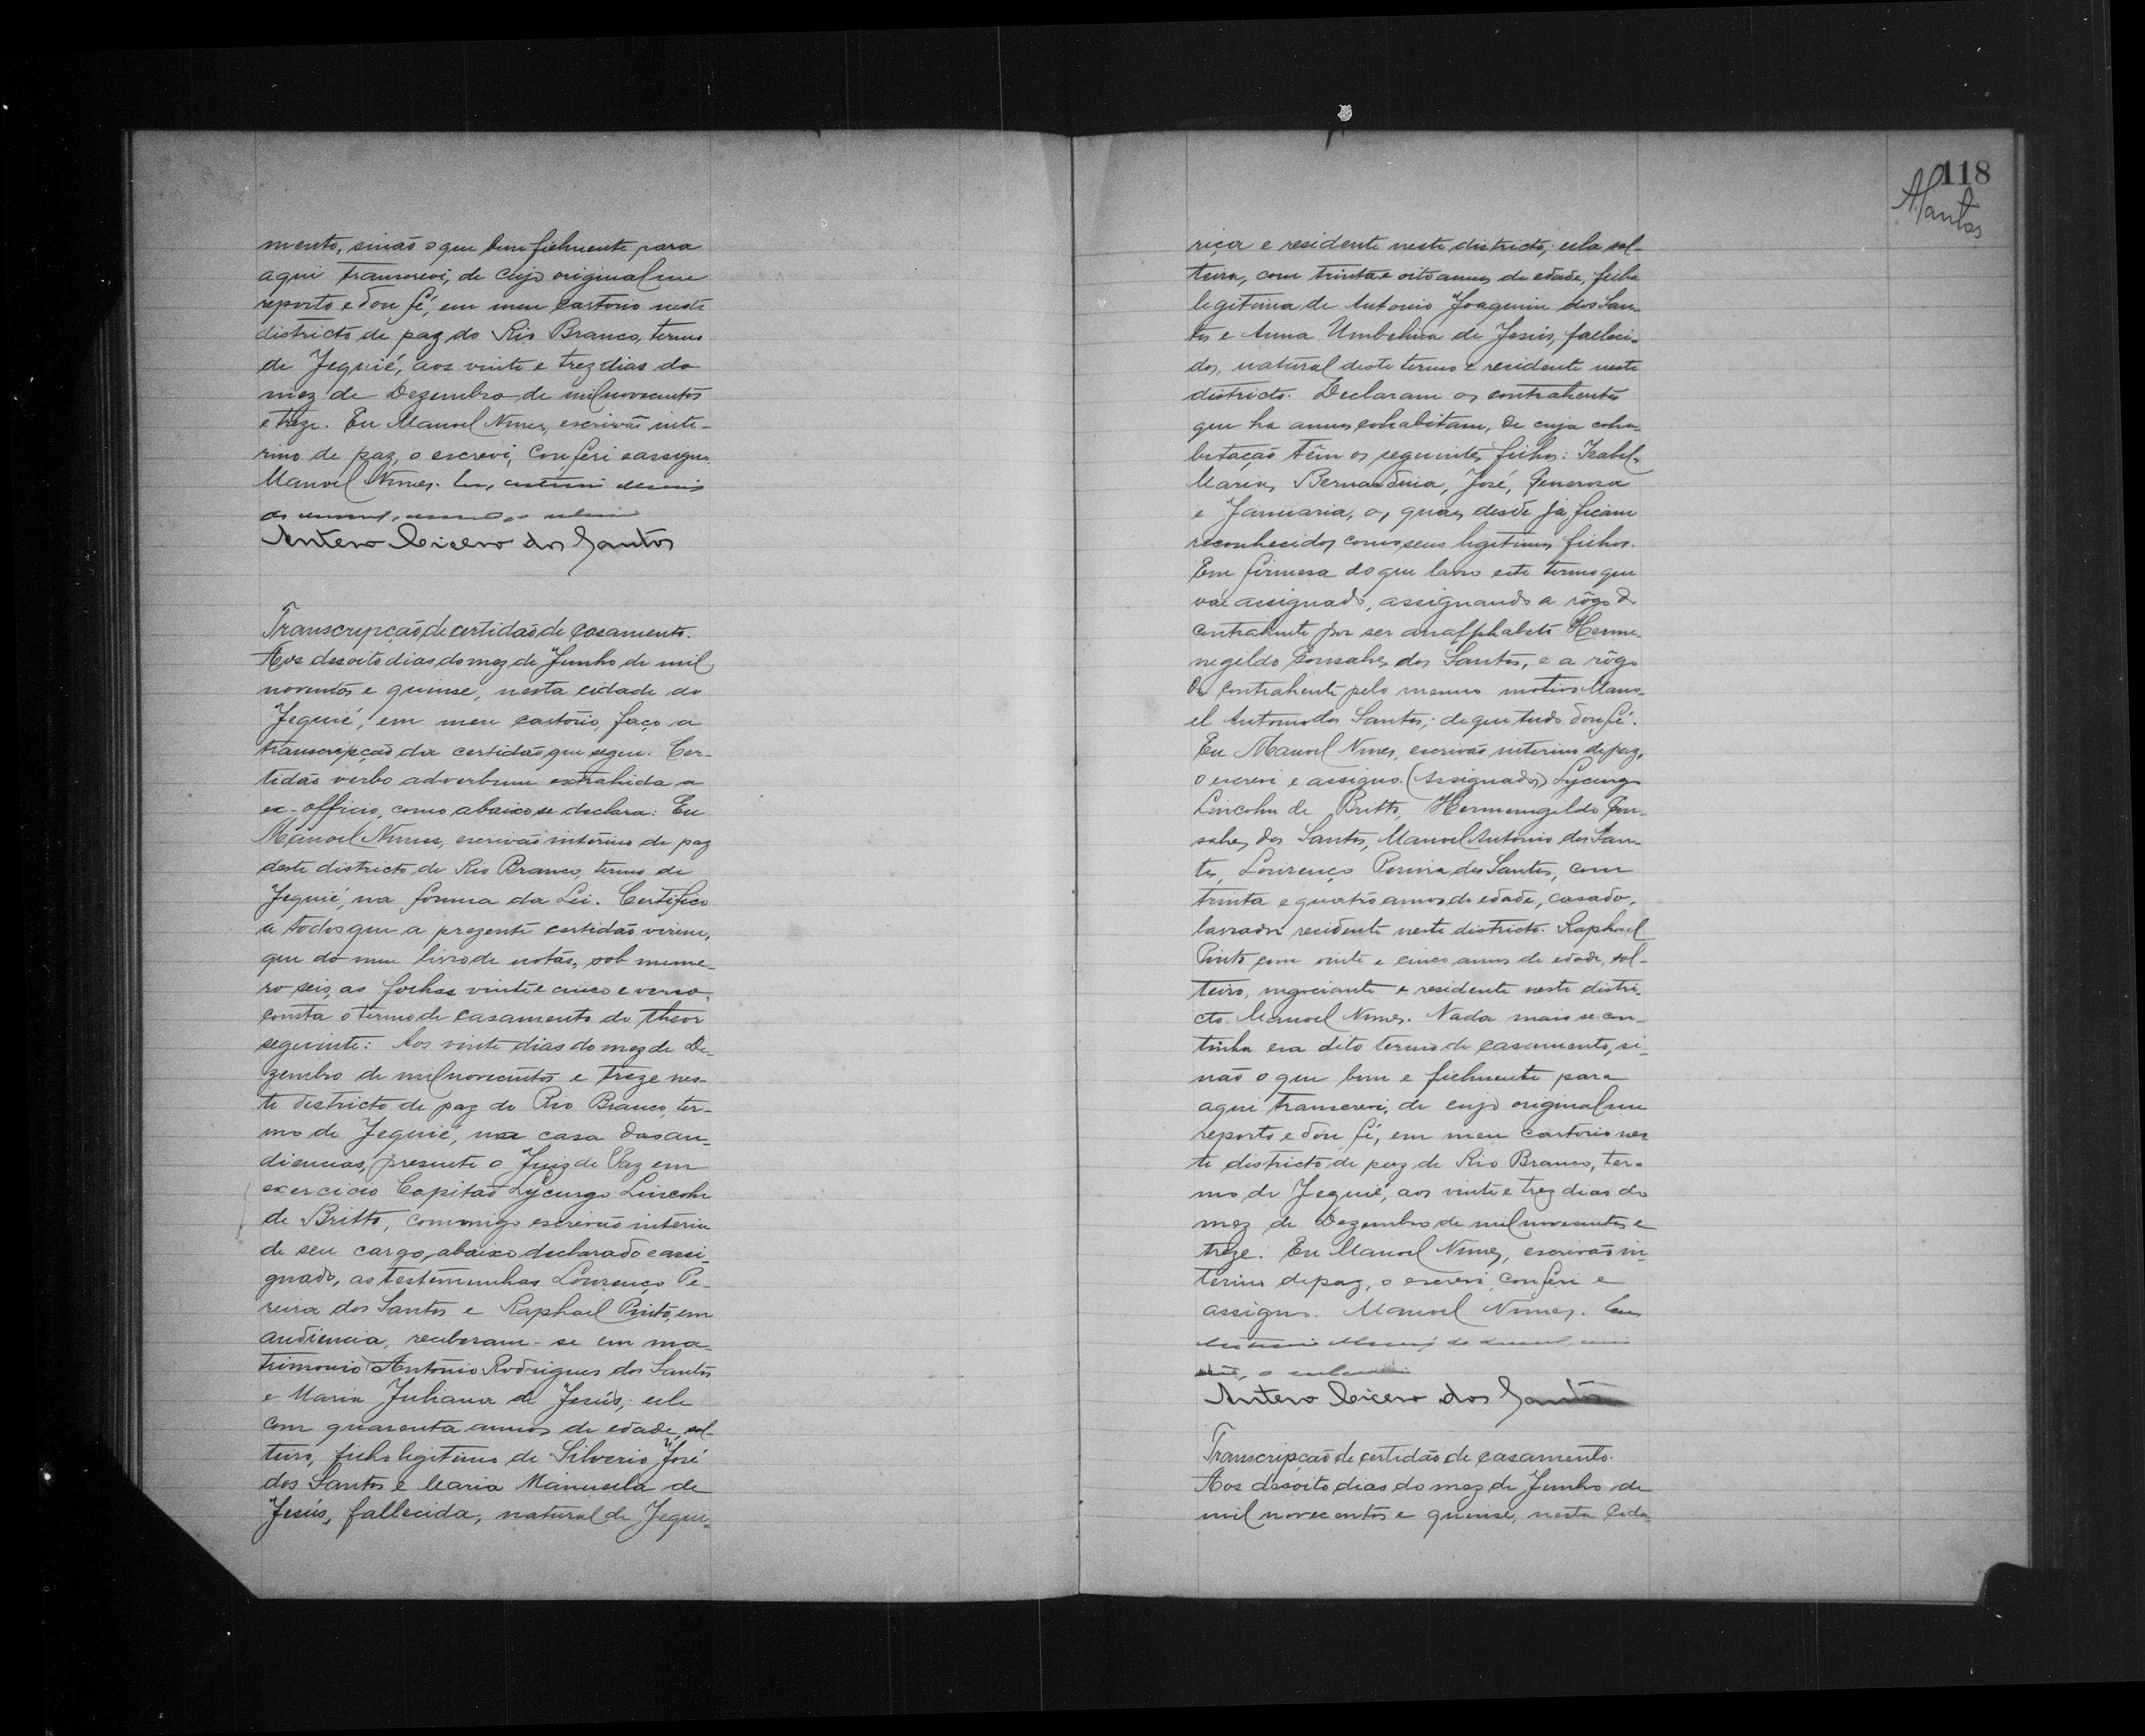 mento, sinão o que bem fielmente para
aqui transcrevi, de cujo original me
reporto e dou fé, em meu cartorio neste
districto de paz do Rio Branco, termo
de Jequié, aos vinte e trez dias do
mez de Dezembro de mil novecentos
e treze. Eu Manoel Nunes, escrivão inte-
rino de paz, o escrevi, conferi e assigno.
Manoel Nunes. Eu,
Antero Cicero dos Santos
Transcripção de certidão de casamento.
Aos desoito dias do mez de Junho de mil
noventos e quinse, nesta cidade de
Jequié, em meu cartorio, faço a
transcripção da certidão que segue: Cer-
tidão verbo adverbum extrahida a
ex-officio, como abaixo se declara: Eu
Manoel Nunes, escrivão interino de paz
deste districto de Rio Branco, termo de
Jequié, na forma da Lei. Certifico
a todos que a prezente certidão virem,
que do meu livro de notas, sob nume-
ro seis, as folhas vinte e cinco e verso,
consta o termo de casamento do theor
seguinte: Aos vinte dias do mez de De-
zembro de mil novecentos e treze nes-
te districto de paz do Rio Branco, ter-
mo de Jequié, na casa das au-
diencias, presente o Juiz de Paz em
exercicio Capitão Lycurgo Lincoln
de Britto, commigo escrivão interino
de seu cargo, abaixo declarado e assi-
gnado, as testemunhas Lourenço Pe-
reira dos Santos e Raphael Pinto, em
audiencia, receberam-se em ma-
trimonio Antonio Rodrigues dos Santos
e Maria Juliana de Jesús; elle
com quarenta annos de edade, sol-
teiro, filho legitimo de Silverio José
dos Santos e Maria Manuela de
Jesús, fallecida, natural de Jequi-
118
ASantos
riça e residente neste districto; ella sol-
teira, com trinta e oito annos de edade, filha
legitima de Antonio Joaquim dos San-
tos e Anna Umbelina de Jesús, falleci-
dos, natural deste termo e residente neste
districto. Declaram os contrahentes
que ha annos cohabitam, de cuja coha-
bitação têm os seguintes filhos: Izabel,
Maria, Bernardina, José, Generosa
e Januaria, os quaes desde já ficam
reconhecidos como seus legitimos filhos.
Em firmesa do que lavro este termo que
vae assignado, assignando a rôgo do
contrahente por ser analphabeto Herme-
negildo Gonsalves dos Santos, e a rôgo
da contrahente pelo mesmo motivo Mano-
el Antonio dos Santos; de que tudo dou fé.
Eu Manoel Nunes, escrivão interino de paz,
o escrevi e assigno. (Assignados) Lycurgo
Lincoln de Britto, Hermenegildo Gon-
salves dos Santos, Manoel Antonio dos San-
tos, Lourenço Pereira dos Santos, com
trinta e quatro annos de edade, casado,
lavrador residente neste districto. Raphael
Pinto com vinte e cinco annos de edade, sol-
teiro, negociante e residente neste distri-
cto. Manoel Nunes. Nada mais se con-
tinha em dito termo de casamento, si-
não o que bem e fielmente para
aqui transcrevi, de cujo original me
reporto e dou fé, em meu cartorio nes
te districto de paz de Rio Branco, ter-
mo de Jequié, aos vinte e trez dias do
mez de Dezembro de mil novecentos e
treze. Eu Manoel Nunes, escrivão in-
terino de paz, o escrevi, conferi e
assigno. Manoel Nunes. Eu
Antero Cicero dos Santos
Transcripção de certidão de casamento.
Aos desoito dias do mez de Junho de
mil novecentos e quinse, nesta cida-